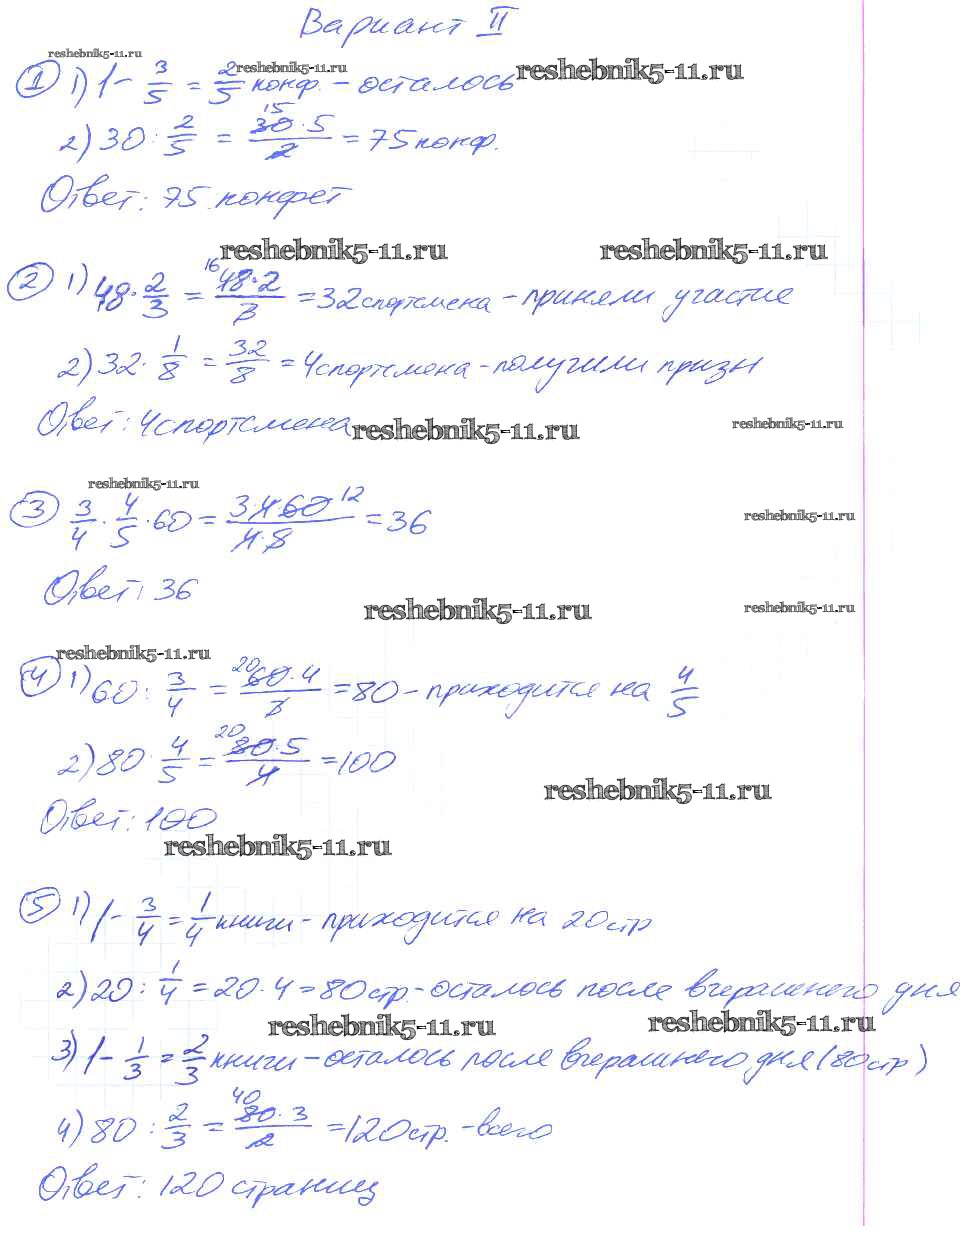 Вариант II
reshebnik5-11.ru
① 1) 1 - 3/5 = 2/5 конф. - осталось reshebnik5-11.ru reshebnik5-11.ru
2) 30 : 2/5 = 30·5/2 = 75 конф. 15
Ответ: 75 конфет
reshebnik5-11.ru reshebnik5-11.ru
② 1) 48 · 2/3 = 48·2/3 = 32 спортсмена - приняли участие 16
2) 32 · 1/8 = 32/8 = 4 спортсмена - получили призы
Ответ: 4 спортсмена reshebnik5-11.ru reshebnik5-11.ru
reshebnik5-11.ru
③ 3/4 · 4/5 · 60 = 3·4·60/4·5 = 36 12 reshebnik5-11.ru
Ответ: 36
reshebnik5-11.ru reshebnik5-11.ru
reshebnik5-11.ru
④ 1) 60 : 3/4 = 60·4/3 = 80 - приходится на 4/5 20
2) 80 : 4/5 = 80·5/4 = 100 20
reshebnik5-11.ru
Ответ: 100
reshebnik5-11.ru
⑤ 1) 1 - 3/4 = 1/4 книги - приходится на 20 стр
2) 20 : 1/4 = 20·4 = 80 стр. - осталось после вчерашнего дня
reshebnik5-11.ru reshebnik5-11.ru
3) 1 - 1/3 = 2/3 книги - осталось после вчерашнего дня (80 стр)
4) 80 : 2/3 = 80·3/2 = 120 стр. - всего 40
Ответ: 120 страниц